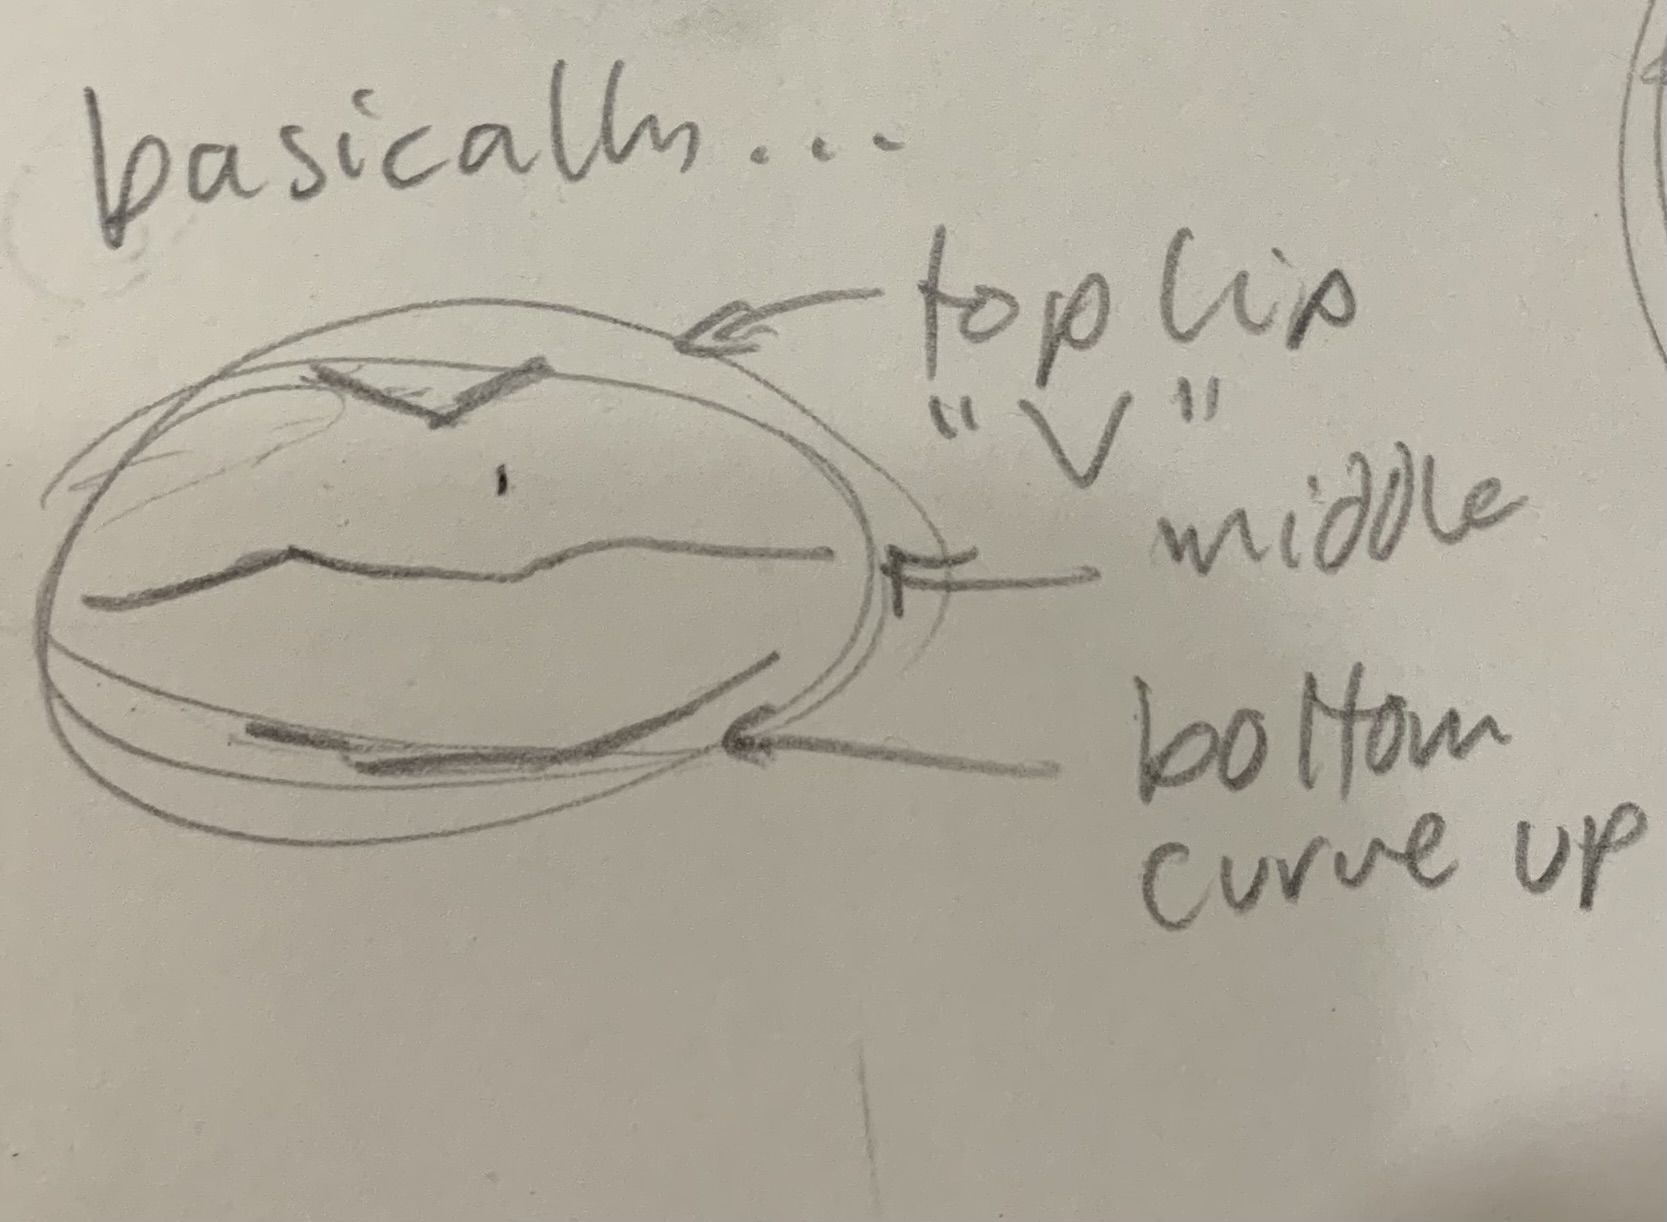 basically...
top lip
"V"
middle
bottom
curve up